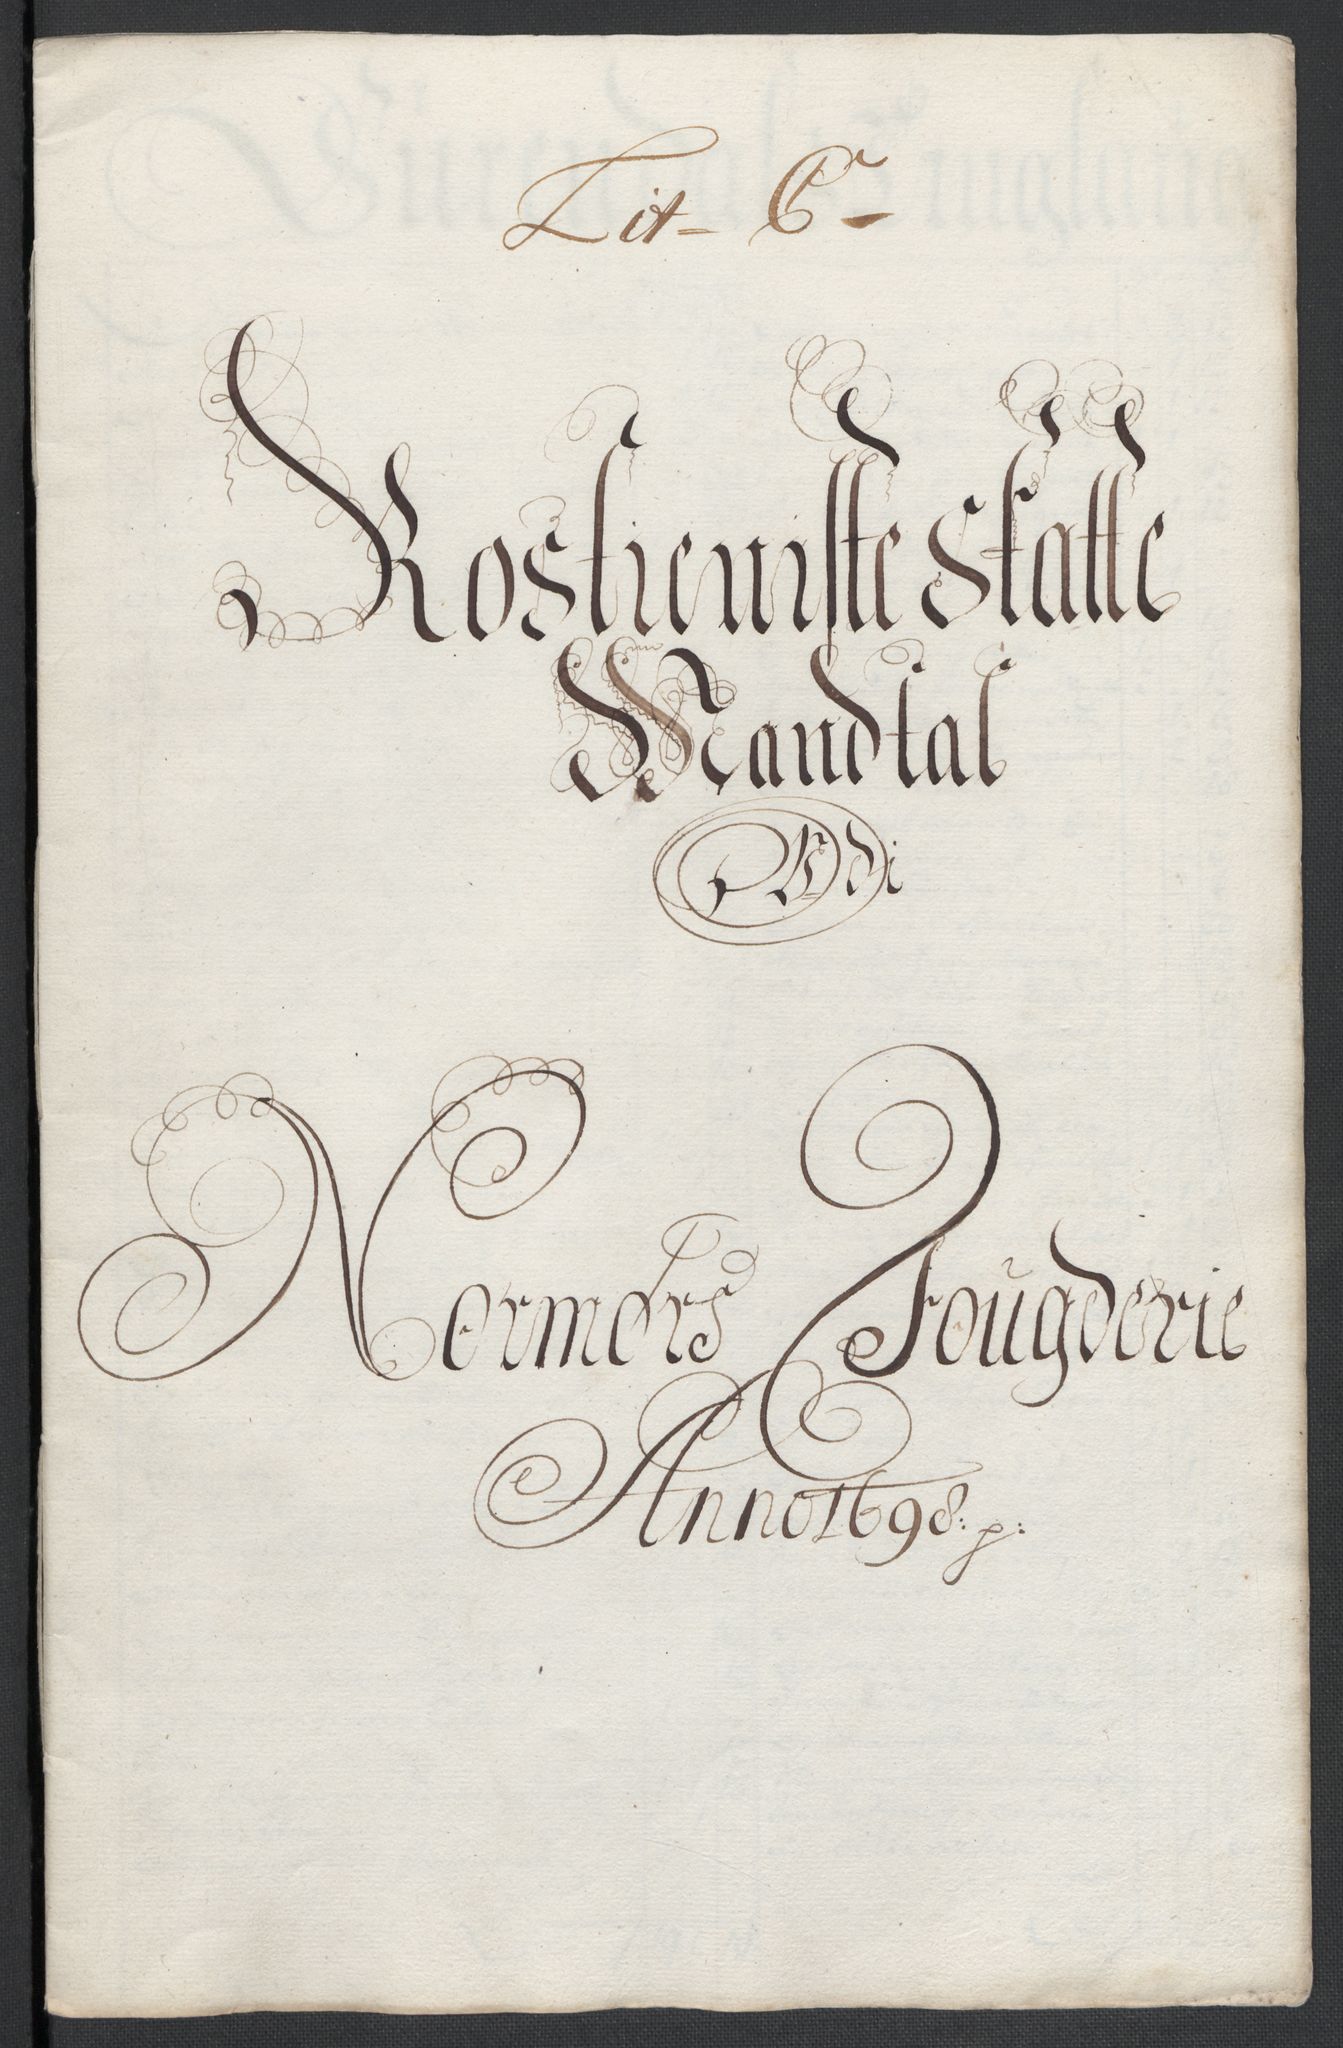 Lit- C
Rostieniste Skatte
Mandtal
Udi
Normørs Fougderie
Anno 1698: p: